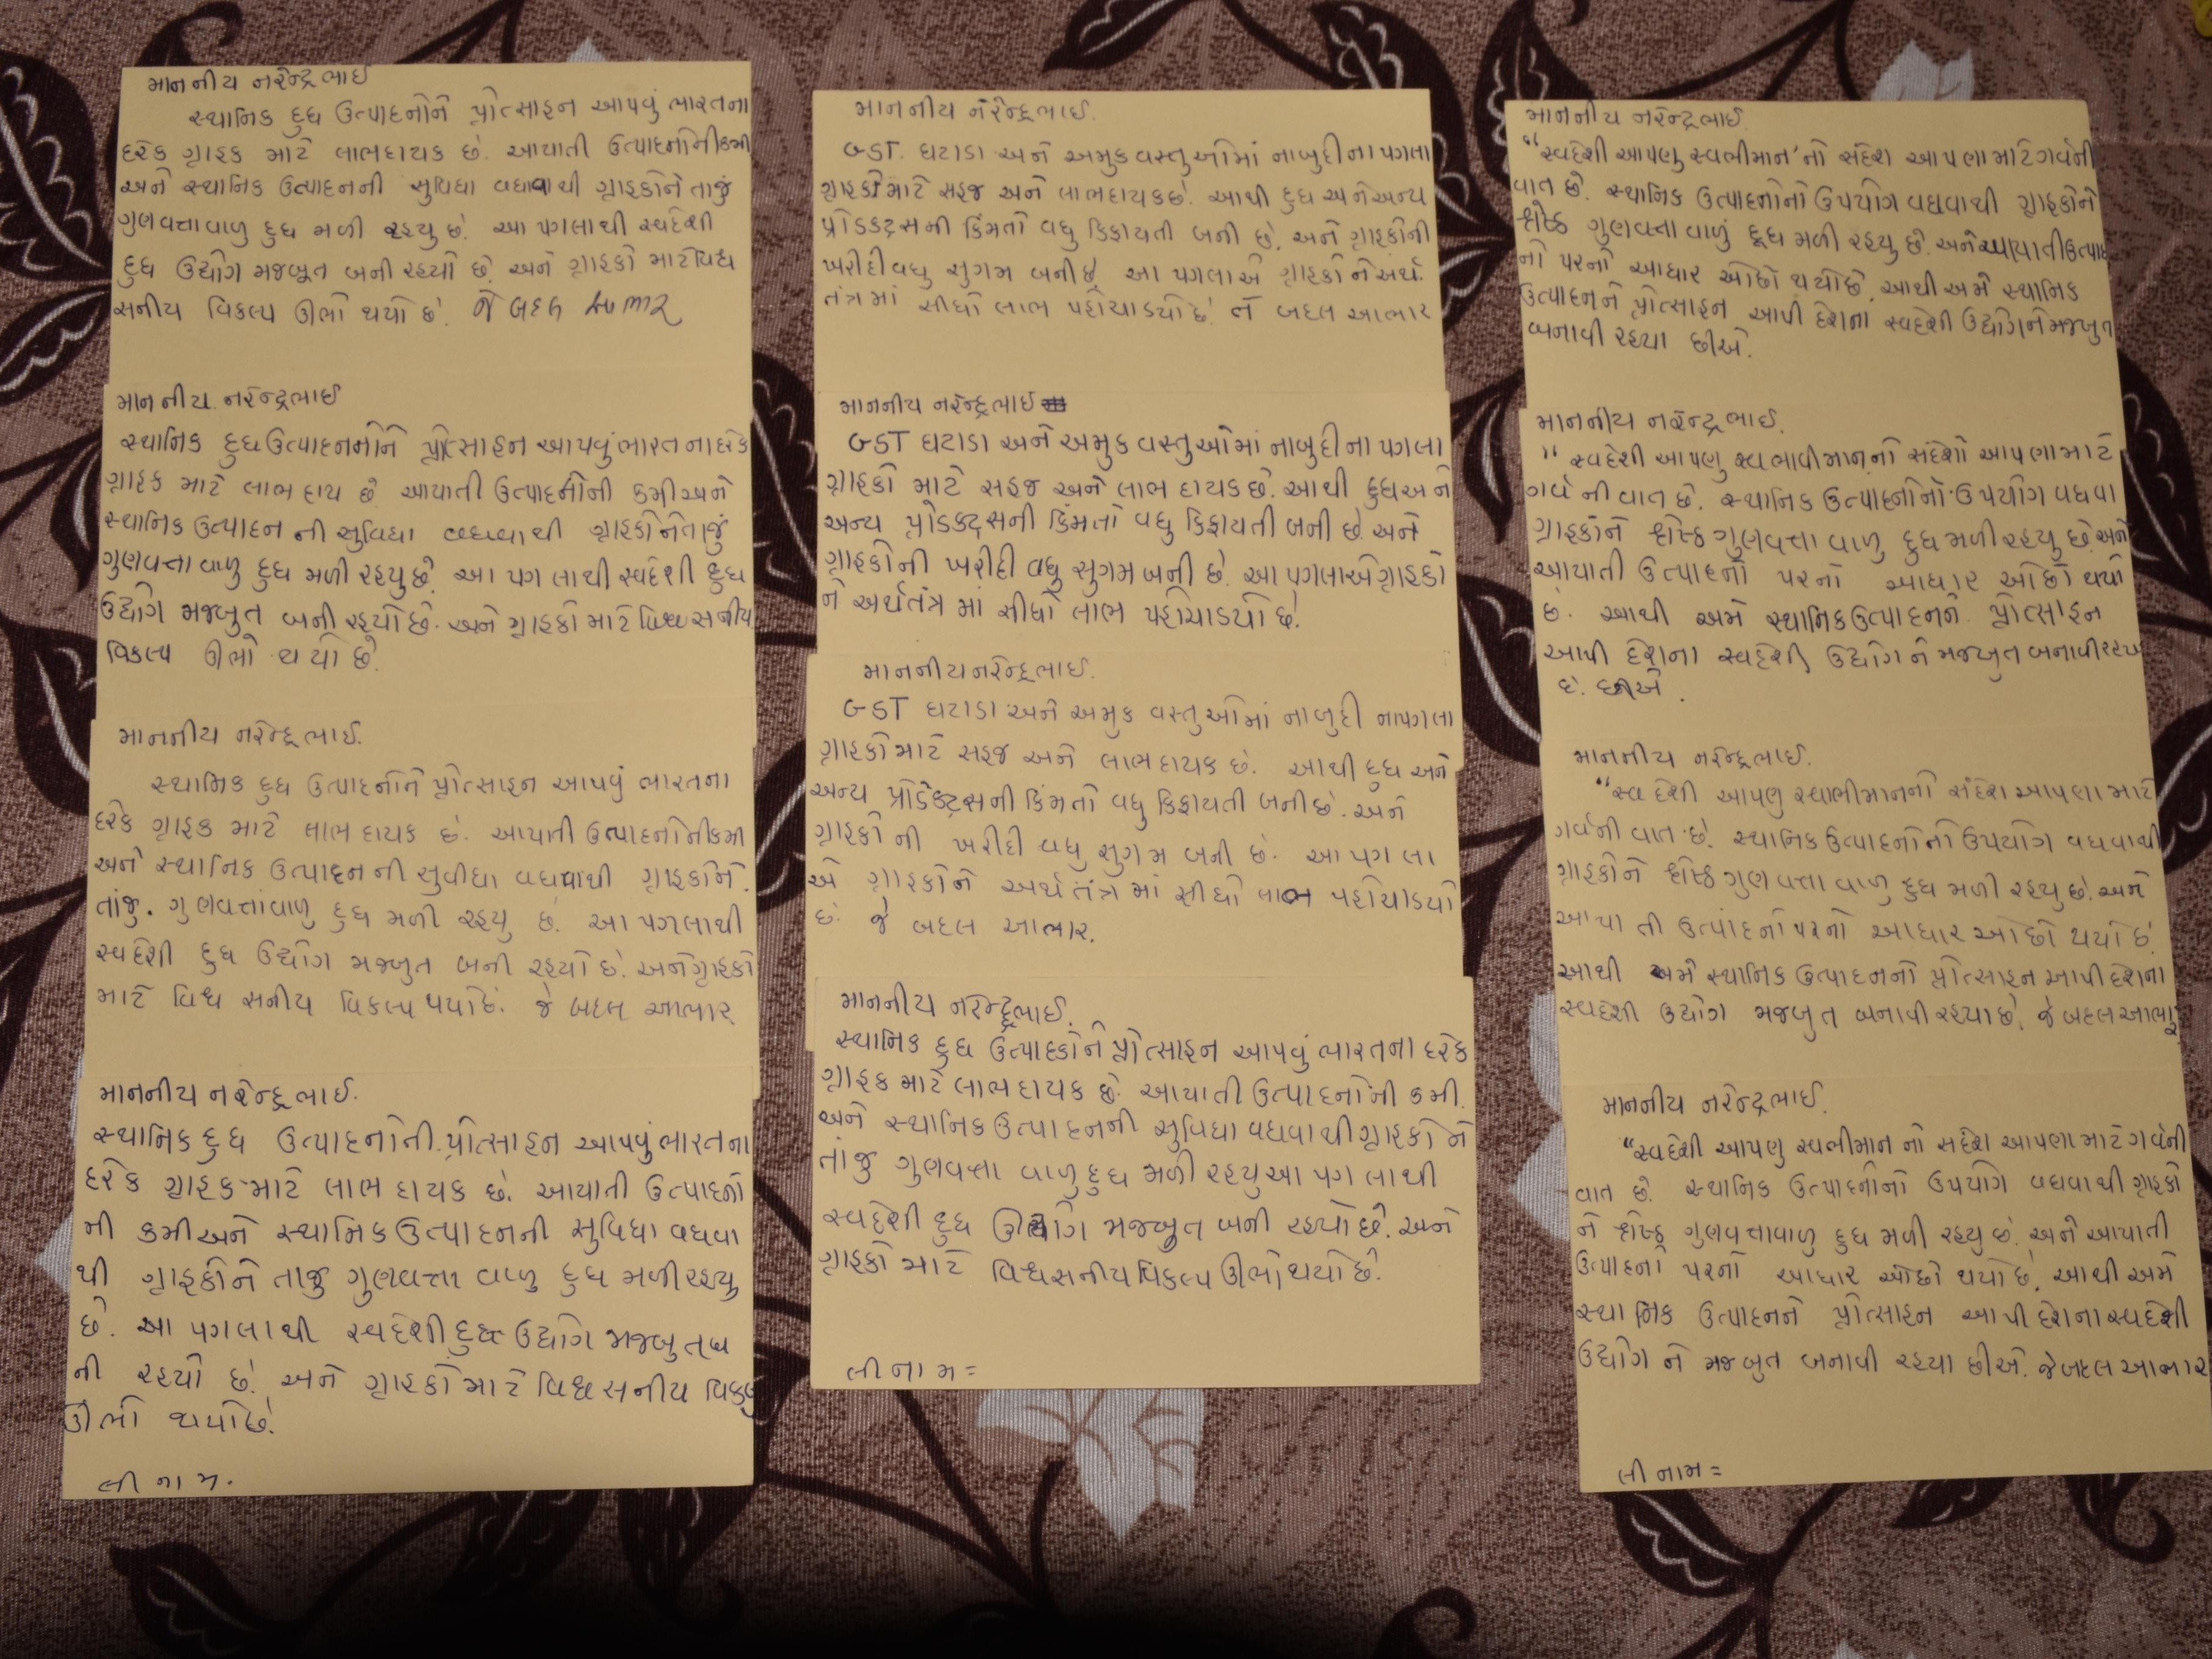 માનનીય નરેન્દ્રભાઈ
સ્થાનિક દુધ ઉત્પાદનોને પ્રોત્સાહન આપવું ભારતના
દરેક ગ્રાહક માટે લાભદાયક છે. આયાતી ઉત્પાદનોની કમી
અને સ્થાનિક ઉત્પાદનની સુવિધા વધવાથી ગ્રાહકોને તાજું
ગુણવત્તાવાળુ દુધ મળી રહયુ છે. આ પગલાથી સ્વદેશી
દુધ ઉદ્યોગ મજબૂત બની રહયો છે. અને ગ્રાહકો માટે વિશ્વ
સનીય વિકલ્પ ઊભો થયો છે. જે બદલ આભાર
માનનીય નરેન્દ્રભાઈ
સ્થાનિક દુધ ઉત્પાદનનોને પ્રોત્સાહન આપવું ભારતના દરેક
ગ્રાહક માટે લાભ દાય છે આયાતી ઉત્પાદનોની કમી અને
સ્થાનિક ઉત્પાદન ની સુવિધા વધવાથી ગ્રાહકોને તાજું
ગુણવત્તા વાળુ દુધ મળી રહયુ છે. આ પગલાથી સ્વદેશી દુધ
ઉદ્યોગ મજબુત બની રહ્યો છે. અને ગ્રાહકો માટે વિશ્વસનીય
વિકલ્પ ઊભો થયો છે.
માનનીય નરેન્દ્રભાઈ.
સ્થાનિક દુધ ઉત્પાદનોને પ્રોત્સાહન આપવું ભારતના
દરેક ગ્રાહક માટે લાભ દાયક છે. આયાતી ઉત્પાદનોનીકમી
અને સ્થાનિક ઉત્પાદન ની સુવીધા વધવાથી ગ્રાહકોને.
તાંજુ. ગુણવત્તાંવાળુ દુધ મળી રહયુ છે. આ પગલાથી
સ્વદેશી દુધ ઉદ્યોગ મજબુત બની રહયો છે. અને ગ્રાહકો
માટે વિશ્વ સનીય વિકલ્પ થયો છે. જે બદલ આભાર
માનનીય નરેન્દ્રભાઈ.
સ્થાનિક દુધ ઉત્પાદનોની પ્રોત્સાહન આપવું ભારતના
દરેક ગ્રાહક માટે લાભ દાયક છે. આયાતી ઉત્પાદનો
ની કમી અને સ્થાનિક ઉત્પાદનની સુવિધા વધવા
થી ગ્રાહકોને તાજુ ગુણવત્તા વાળુ દુધ મળી રહયુ
છે. આ પગલાથી સ્વદેશી દુધ ઉદ્યોગ મજબુત બ
ની રહયો છે. અને ગ્રાહકો માટે વિશ્વસનીય વિકલ્પ
ઊભો થયો છે.
લી નામ.
માનનીય નરેન્દ્રભાઈ.
GST. ઘટાડા અને અમુક વસ્તુઓમાં નાબુદીના પગલા
ગ્રાહકો માટે સહજ અને લાભદાયક છે. આથી દુધ અને અન્ય
પ્રોડક્ટ્સની કિંમતો વધુ કિફાયતી બની છે. અને ગ્રાહકોની
ખરીદી વધુ સુગમ બની છે આ પગલાએ ગ્રાહકોને અર્થ.
તંત્રમાં સીધો લાભ પહોંચાડયો છે. તે બદલ આભાર
માનનીય નરેન્દ્રભાઈ
GST ઘટાડા અને અમુક વસ્તુઓમાં નાબુદીના પગલા
ગ્રાહકો માટે સહજ અને લાભ દાયક છે. આથી દુધ અને
અન્ય પ્રોડક્ટ્સની કિંમતો વધુ કિફાયતી બની છે અને
ગ્રાહકોની ખરીદી વધુ સુગમ બની છે. આ પગલાએ ગ્રાહકો
ને અર્થતંત્ર માં સીધો લાભ પહોચાડયો છે.
માનનીય નરેન્દ્રભાઈ.
GST ઘટાડા અને અમુક વસ્તુઓમાં નાબુદી નાપગલા
ગ્રાહકો માટે સહજ અને લાભ દાયક છે. આથી દુધ અને
અન્ય પ્રોડેક્ટ્સની કિંમતો વધુ કિફાયતી બની છે. અને
ગ્રાહકો ની ખરીદી વધુ સુગમ બની છે. આ પગલા
એ ગ્રાહકોને અર્થતંત્ર માં સીધો લાભ પહોચાડયો
છે. જે બદલ આભાર.
માનનીય નરેન્દ્રભાઈ.
સ્થાનિક દુધ ઉત્પાદકોને પ્રોત્સાહન આપવું ભારતના દરેક
ગ્રાહક માટે લાભ દાયક છે. આયાતી ઉત્પાદનોની કમી.
અને સ્થાનિક ઉત્પાદનની સુવિધા વધવાથી ગ્રાહકો ને
તાંજુ ગુણવત્તા વાળુ દુધ મળી રહયુ આ પગલાથી
સ્વદેશી દુધ ઊદ્યોગ મજબુત બની રહયો છે. અને
ગ્રાહકો માટે વિશ્વસનીય વિકલ્પ ઊભો થયો છે.
લી નામ =
માનનીય નરેન્દ્રભાઈ
"સ્વદેશી આપણુ સ્વભીમાન'નો સંદેશ આપણા માટે ગર્વની
વાત છે. સ્થાનિક ઉત્પાદનોનો ઉપયોગ વધવાથી ગ્રાહકોને
શ્રેષ્ઠ ગુણવત્તા વાળું દૂધ મળી રહયુ છે. અને આયાતી ઉત્પાદ
નો પરનો આધાર ઓછો થયો છે. આથી અમે સ્થાનિક
ઉત્પાદનને પ્રોત્સાહન આપી દેશના સ્વદેશી ઉદ્યોગને મજબુત
બનાવી રહયા છીએ.
માનનીય નરેન્દ્રભાઈ.
" સ્વદેશી આપણુ સ્વભાવીમાન.નો સંદેશો આપણા માટે
ગર્વ ની વાત છે. સ્થાનિક ઉત્પાદનોનો ઉપયોગ વધવા
ગ્રાહકોને શ્રેષ્ઠ ગુણવત્તા વાળુ દુધ મળી રહયુ છે. અને
આયાતી ઉત્પાદનો પરનો આધાર ઓછો થયો
છે. આથી અમે સ્થાનિક ઉત્પાદનને પ્રોત્સાહન
આપી દેશના સ્વદેશી ઉદ્યોગ ને મજબુત બનાવી
છે. છીએ.
માનનીય નરેન્દ્રભાઈ.
"સ્વદેશી આપણુ સ્વાભીમાનનો સંદેશ આપણા માટે
ગર્વની વાત છે. સ્થાનિક ઉત્પાદનોનો ઉપયોગ વધવાથી
ગ્રાહકોને શ્રેષ્ઠ ગુણવત્તા વાળુ દુધ મળી રહયુ છે. અને
આયાતી ઉત્પાદનો પરનો આધાર ઓછો થયો છે.
આથી અમે સ્થાનિક ઉત્પાદનનો પ્રોત્સાહન આપી દેશના
સ્વદેશી ઉદ્યોગ મજબુત બનાવી રહયા છે. જે બદલ આભાર
માનનીય નરેન્દ્રભાઈ.
"સ્વદેશી આપણુ સ્વભીમાન નો સંદેશ આપણા માટે ગર્વની
વાત છે. સ્થાનિક ઉત્પાદનોનો ઉપયોગ વધવાથી ગ્રાહકો
ને શ્રેષ્ઠ ગુણવત્તાવાળુ દુધ મળી રહયુ છે. અને આયાતી
ઉત્પાદનો પરનો આધાર ઓછો થયો છે. આથી અમે
સ્થાનિક ઉત્પાદનને પ્રોત્સાહન આપી દેશના સ્વદેશી
ઉદ્યોગ ને મજબુત બનાવી રહયા છીએ. જે બદલ આભાર
લી નામ =